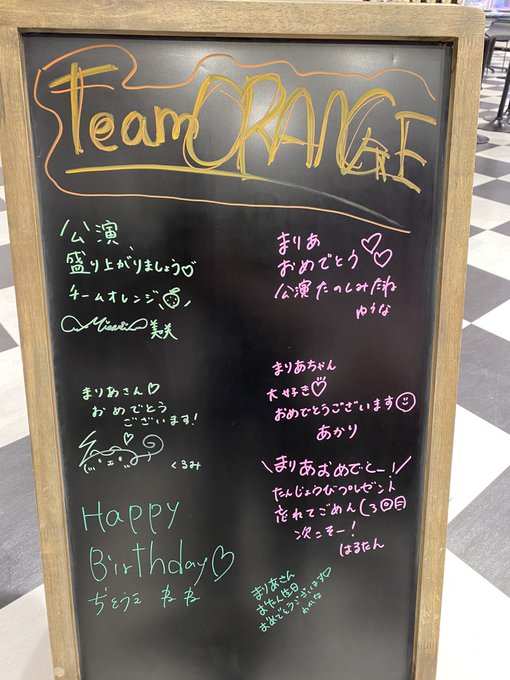 Team ORANGE
公演、
盛り上がりましょう♡
チームオレンジ
美美
まりあ
おめでとう♡♡
公演たのしみだね
ゆうな
まりあさん♡
おめでとう
ございます!
くるみ
まりあちゃん
大好き♡
おめでとうございます
あかり
\まりあおめでとー!/
たんじょうびプレゼント
忘れてごめん(3回目
次こそー!
はるたん
Happy
Birthday♡
まりあさん
お誕生日
おめでとうございます♡
わかな